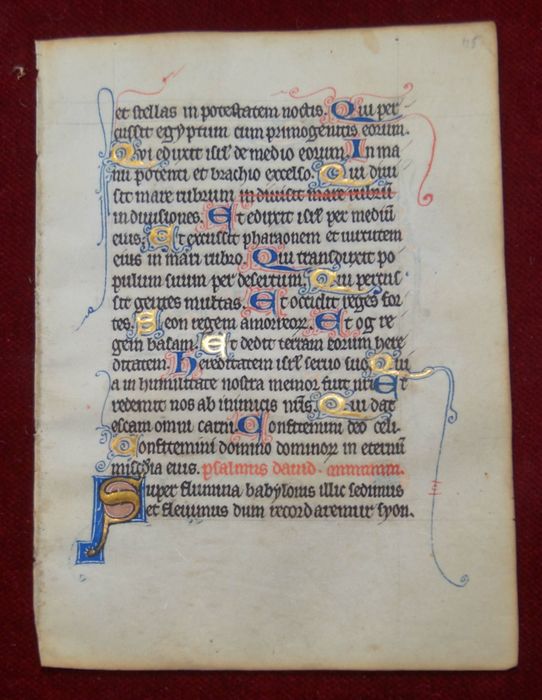 et stellas in potestatem noctis. Qui per
cussit egyptum cum primogenitis eorum.
Qui eduxit isrl' de medio eorum. In ma
nu potenti et brachio excelso. Qui diui
sit mare rubrum in diuisit mare rubrū
in diuisiones. Et eduxit isrl' per mediū
eius. Et excussit pharaonem et uirtutem
eius in mari rubro. Qui transduxit po
pulum suum per desertum. Qui percus
sit gentes multas. Et occidit reges for
tes. Seon regem amorreor. Et og re
gem basam. Et dedit terram eorum here
ditatem. Hereditatem isrl' seruo suo. Qui
a in humilitate nostra memor fuit nri Et
redemit nos ab inimicis nr̄is. Qui dat
escam omni carni. Confitemini deo celi.
Confitemini domino dominor in eternū
mis̄cdia eius. psalmus dauid.
Super flumina babylonis illic sedimus
et fleuimus dum recordaremur syon.